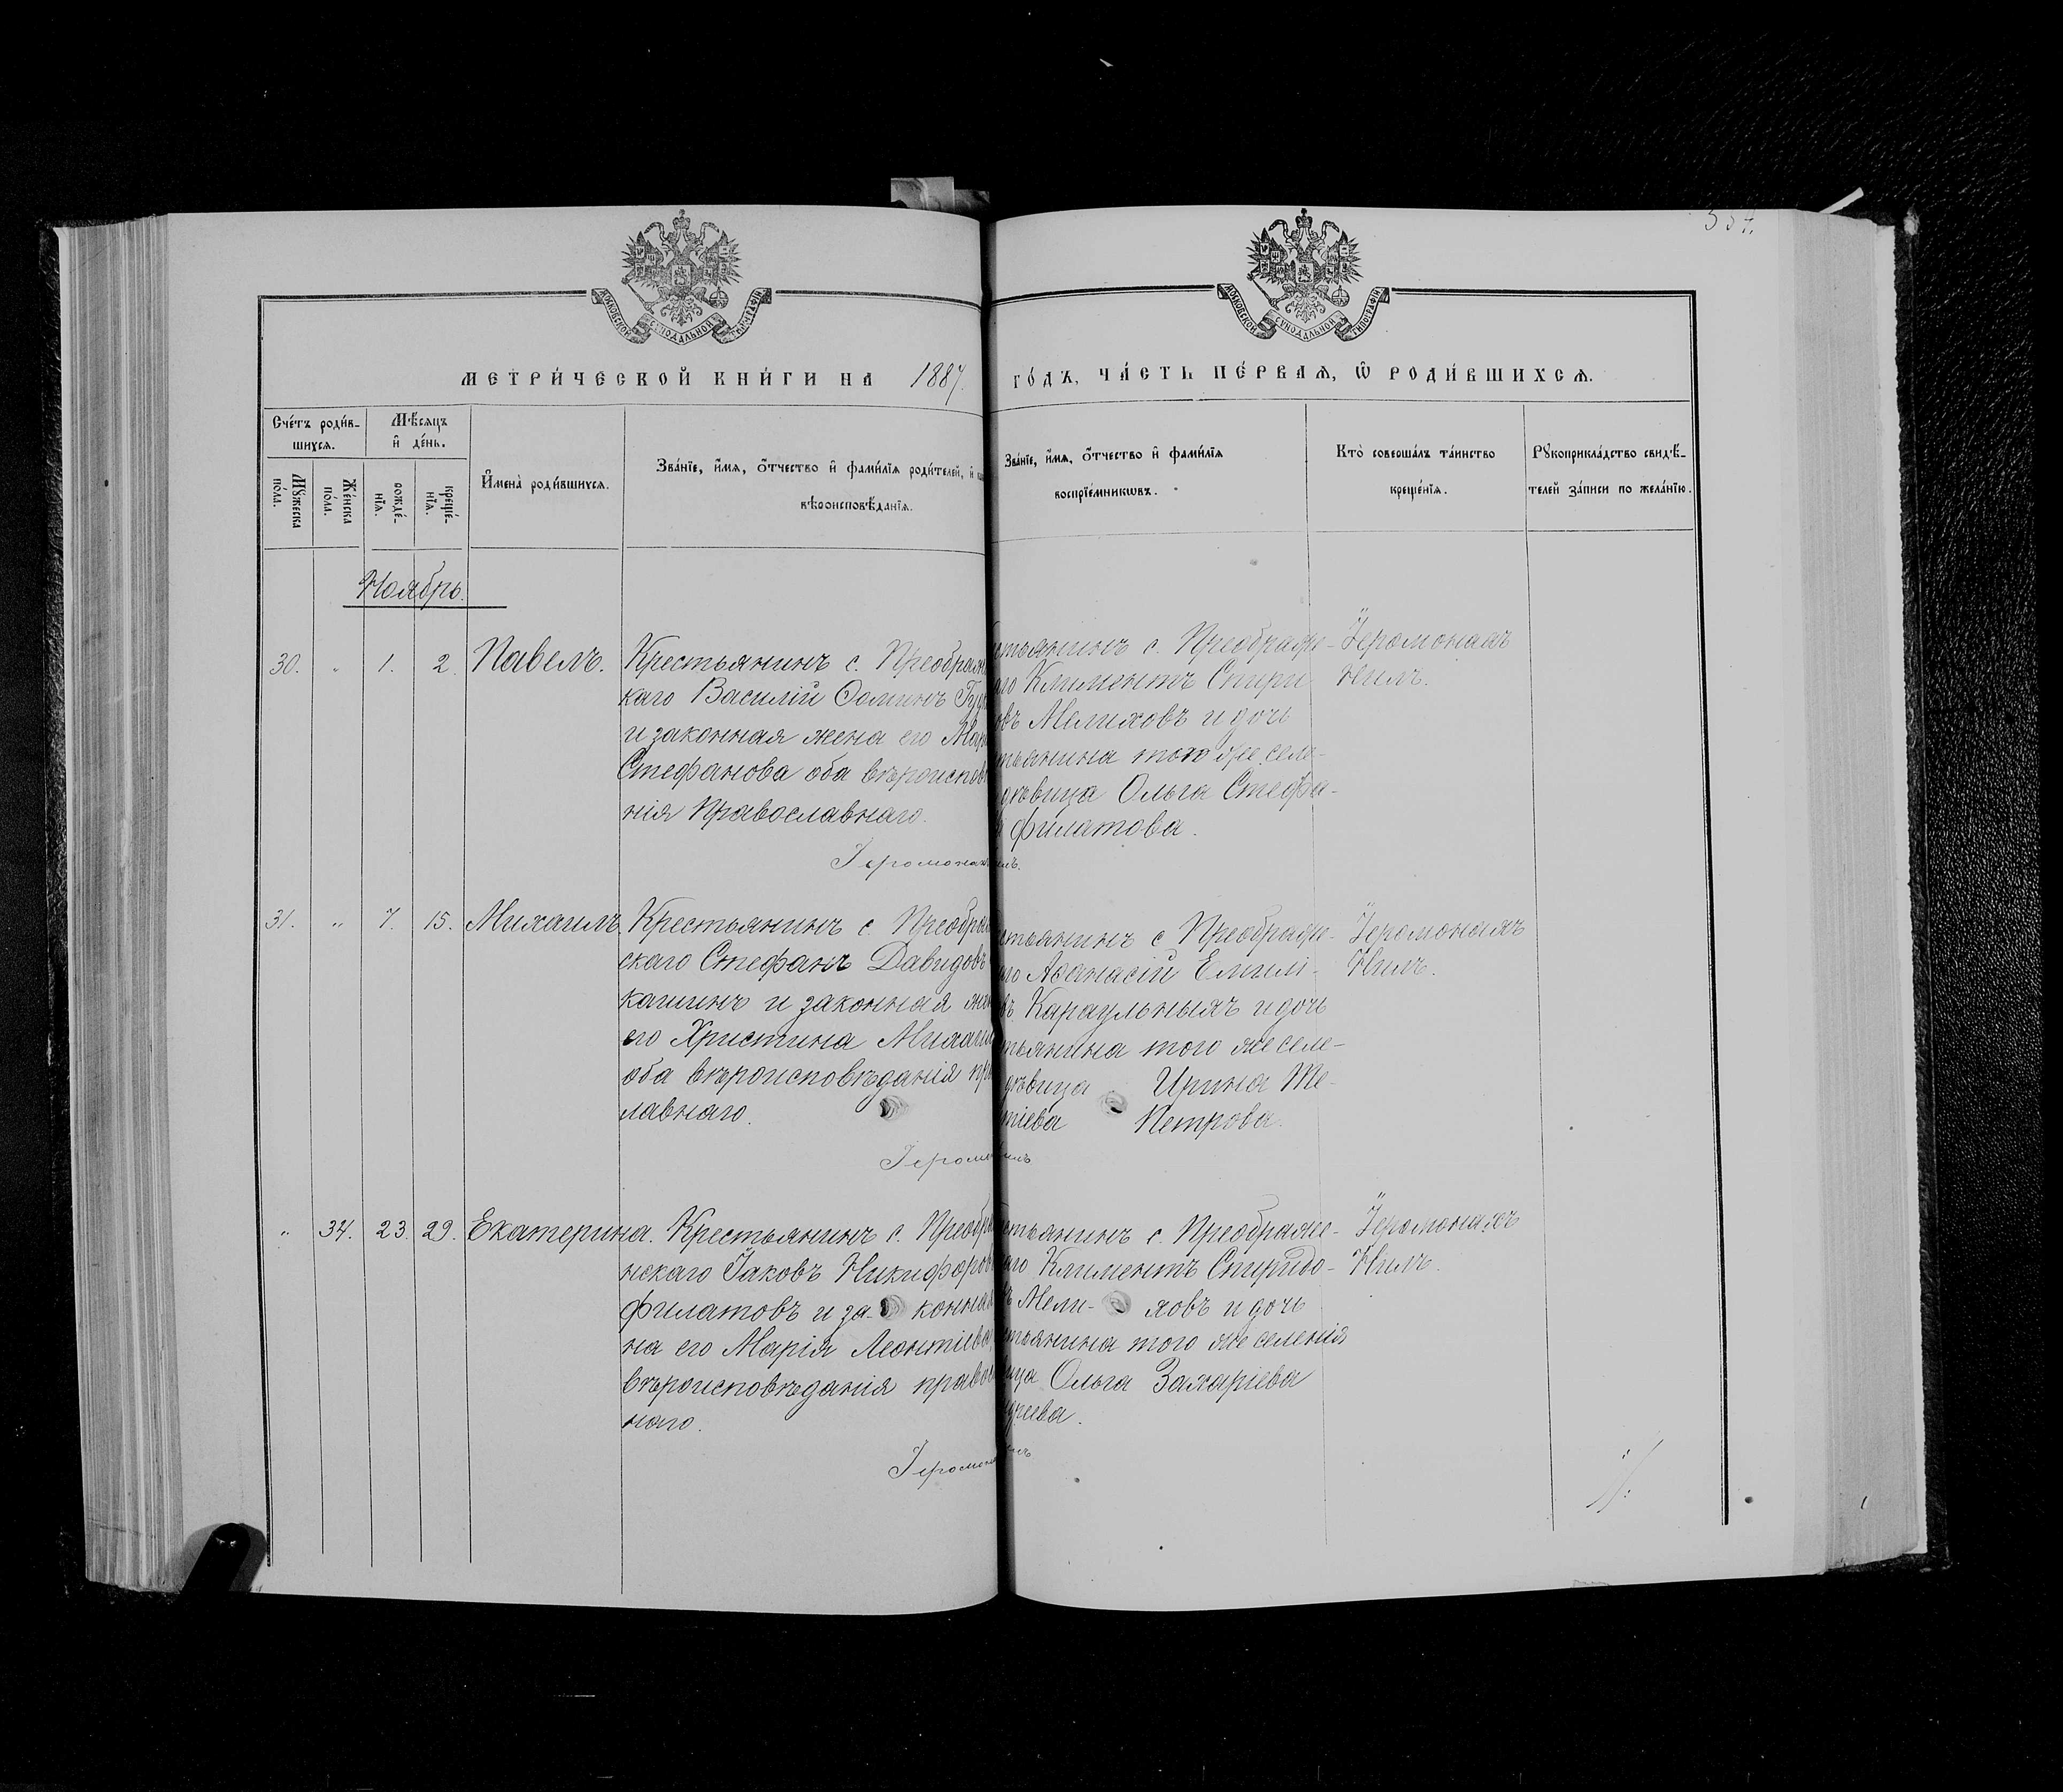 МОСКОВСКОЙ СУНОДАЛЬНОЙ ТИПОГРАФІИ
МОСКОВСКОЙ СУНОДАЛЬНОЙ ТИПОГРАФІИ
МЕТРИ́ЧЕСКОЙ КНИ́ГИ НА 1887. ГО́ДЪ, ЧА́СТЬ ПЕ́РВАѦ, Ѡ҆ РОДИ́ВШИХСѦ.
Сче́тъ роди́в-
шихсѧ.
Мꙋ́жеска по́ла.
Же́нска по́ла.
Мѣ́сѧцъ
и҆ де́нь.
рожде́-
нїѧ.
креще́-
нїѧ.
И҆мена̀ роди́вшихсѧ.
Зва́нїе, и҆́мѧ, ѻ҆́тчество и҆ фами́лїѧ роди́телей, и҆
вѣроисповѣ́данїѧ.
Зва́нїе, и҆́мѧ, ѻ҆́тчество и҆ фами́лїѧ
воспрїе́мникѡвъ.
Кто̀ соверша́лъ та́инство
креще́нїѧ.
Рꙋкоприкла́дство свидѣ́-
телей за́писи по жела́нїю.
Ноябрь.
30. " 1. 2. Павелъ.
Крестьянинъ с. Преображ
каго Василій Ѳоминъ
и законная жена его Мар
Стефанова оба вѣроиспов
нія Православнаго.
Іеромонах
стьянинъ с. Преображе-
аго Климентъ Спири
овъ Мелиховъ и дочь
тьянина того же селе-
дѣвица Ольга Стефа-
филатова.
илъ.
Іеромонахъ
Нилъ.
31. " 7. 15. Михаилъ.
Крестьянинъ с. Преобра
скаго Стефанъ Давидовъ
кашинъ и законная же
его Христина Михаи
оба вѣроисповѣданія пр
лавнаго.
Іеромо
стьянинъ с Преображе-
го Аѳанасій Емилі-
въ Караульныхъ и дочь
тьянина того же селе-
дѣвица Ирина Ме-
тіева Петрова.
илъ
Іеромонахъ
Нилъ.
" 34. 23. 29. Екатерина.
Крестьянинъ с. Преобра
нскаго Іаковъ Никифоров
филатовъ и за- конная
на его Марія Леонтіева
вѣроисповѣданія правос
наго.
Іеромона
стьянинъ с. Преображе-
аго Климентъ Спиридо-
ъ Мели- ховъ и дочь
стьянина того же селенія
ица Ольга Захаріева
Іеромонахъ
Нилъ.